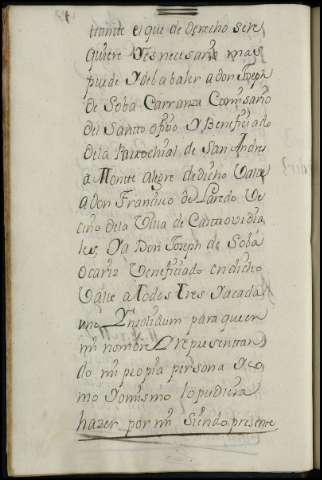 tamte el que de derecho sere
quiere Yes necesario mas
puede Y deba baler a don Joseph
de Soba Carranza Comisario
del Santto offiᵒ Y Beneficiado
dela Parrochial de San Andres
a Montte alegre de dicho Valle
a don Francisco de Laredo Ve
cino dela Villa de Castro vrdia
les Ya Don Joseph de Soba
Ocariz Beneficiado en dicho
Valle a Todos Tres Ya cada
uno Ynsolidum para que en
mi nombre Y representtan
do mi propia persona Y co
mo Yo mismo lo pudiera
hazer por mi siendo presente